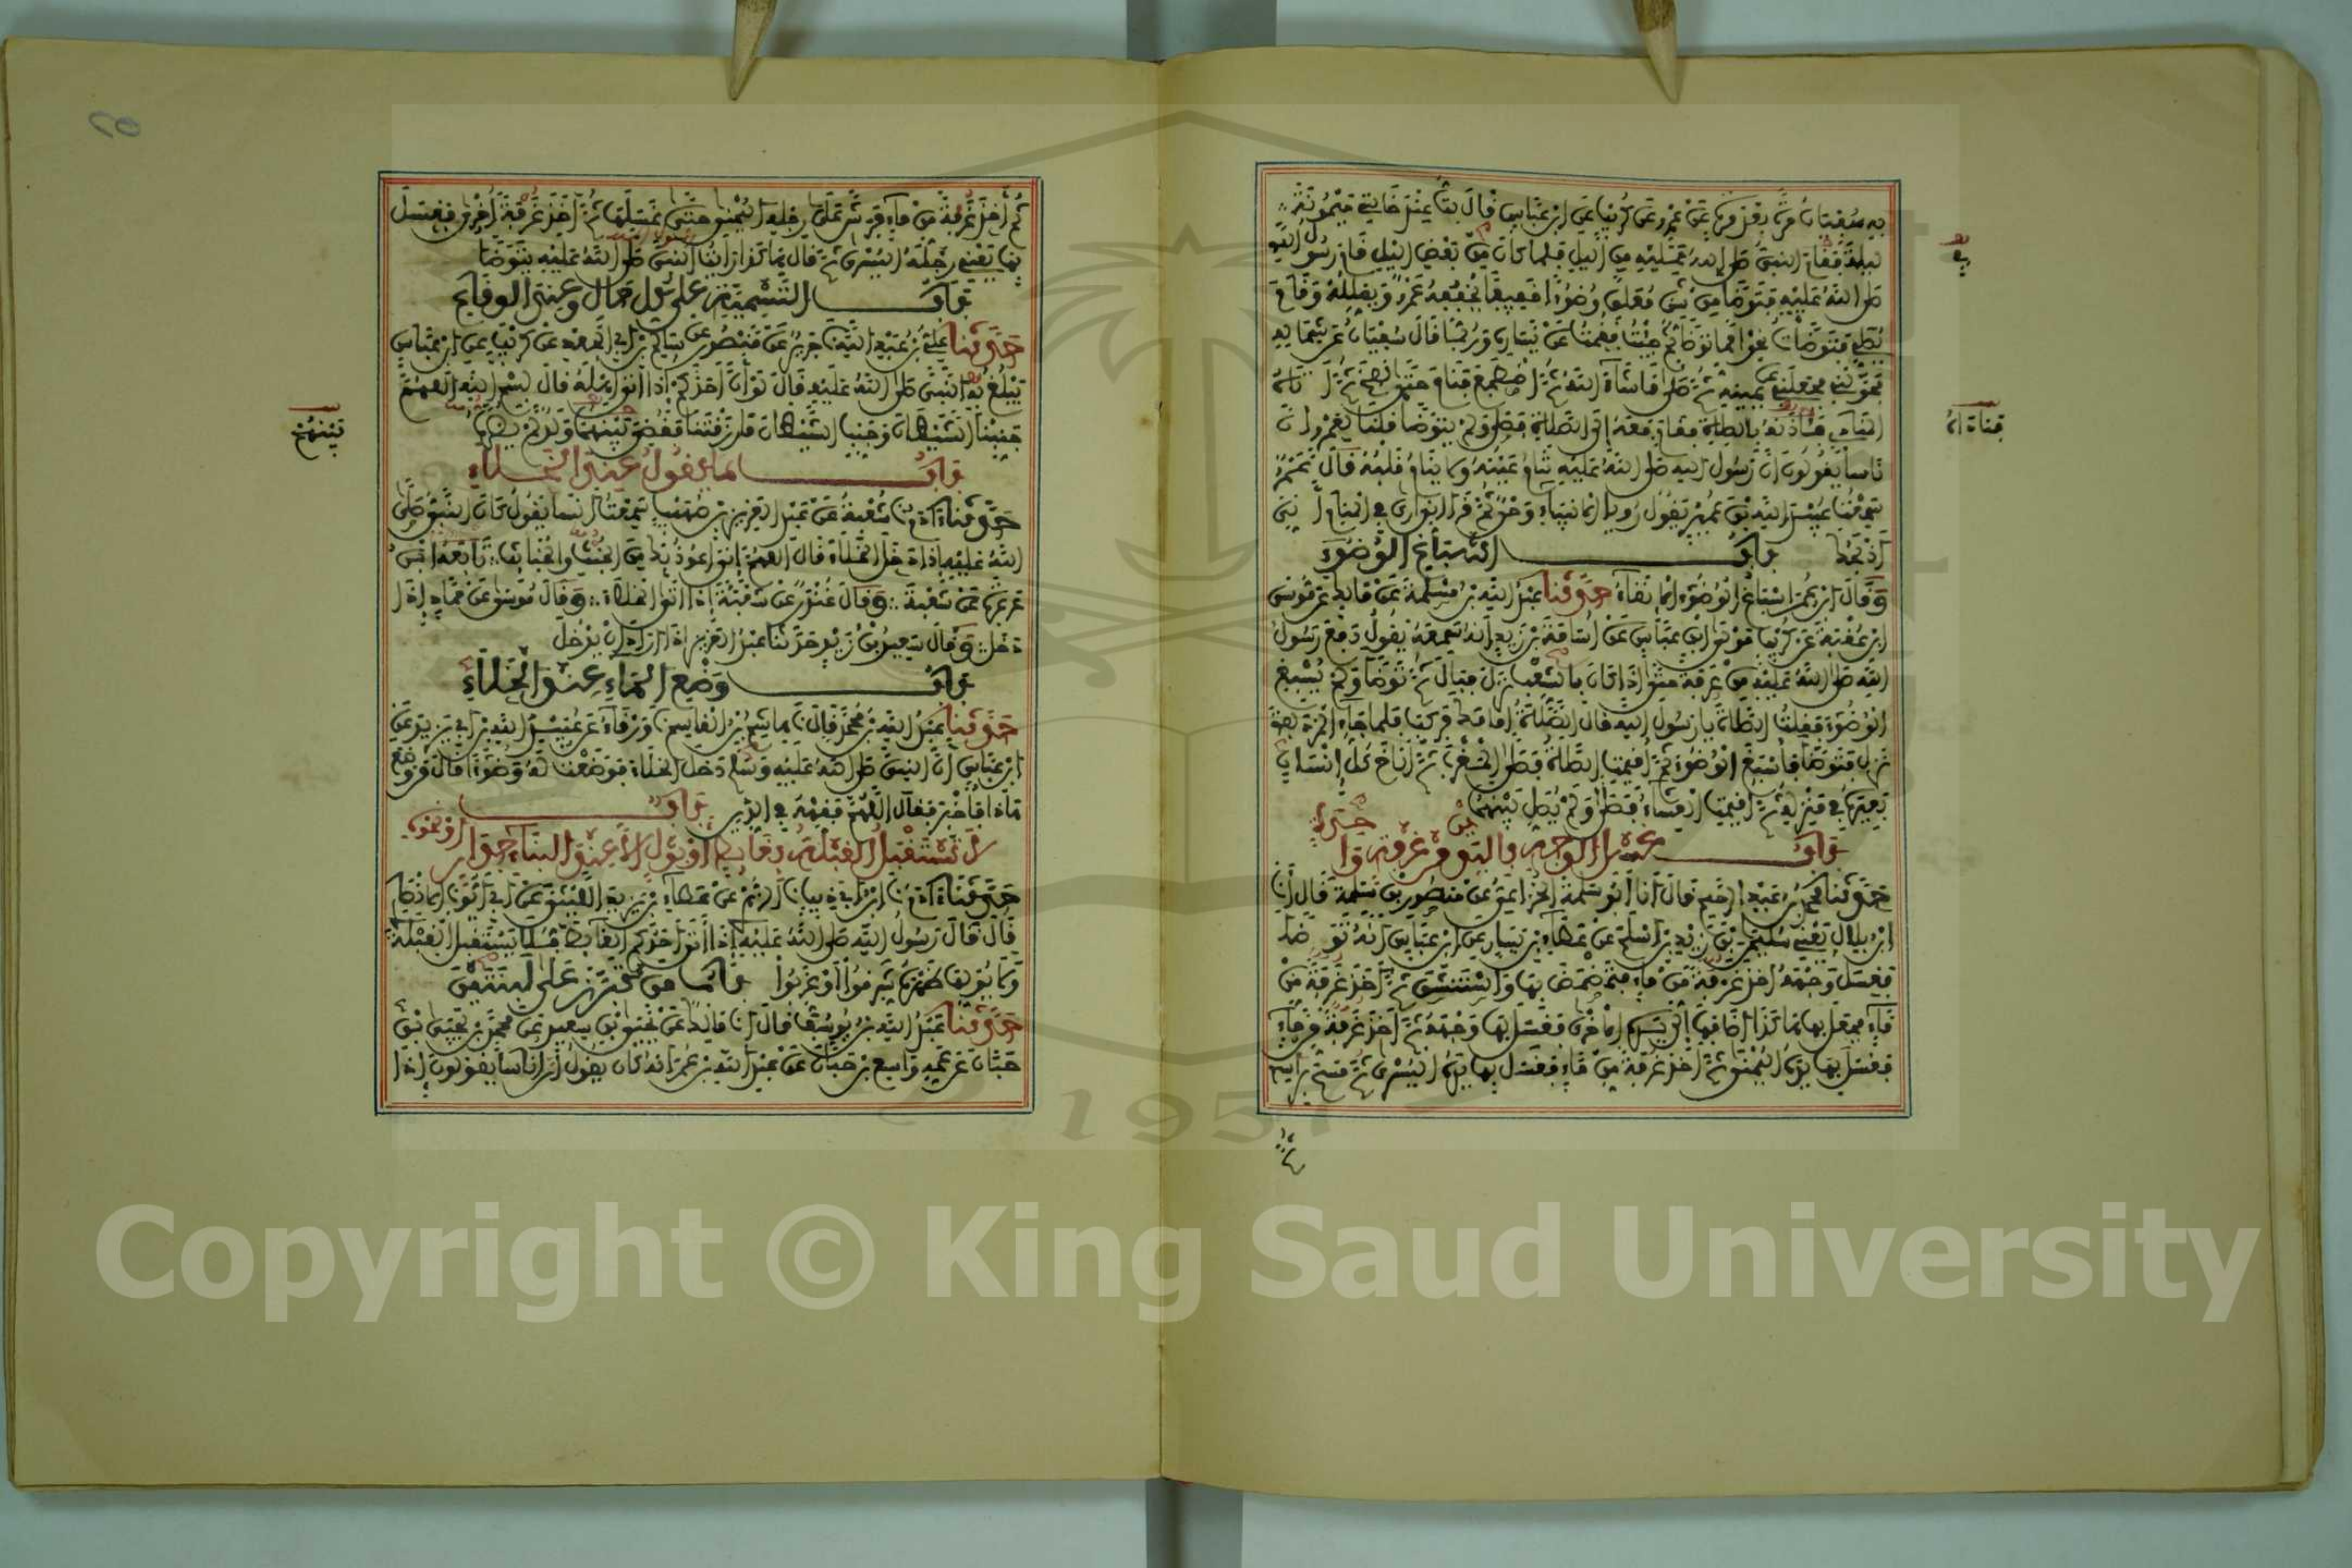 به سفيان مرة بعد مرة عن عمرو عن كريب عن ابن عباس قال بت عند خالتي ميمونة
ليلة فقام النبي صلى الله عليه من الليل فلما كان في بعض الليل قام رسول الله
صلى الله عليه فتوضأ من شن معلق وضوءا خفيفا يخففه عمرو ويقلله وقام
يصلي فتوضأت نحوا مما توضأ ثم جئت فقمت عن يساره وربما قال سفيان عن شماله
فحولني فجعلني عن يمينه ثم صلى ما شاء الله ثم اضطجع فنام حتى نفخ ثم أتاه
المنادي فآذنه بالصلاة فقام معه إلى الصلاة فصلى ولم يتوضأ قلنا لعمرو إن
ناسا يقولون إن رسول الله صلى الله عليه تنام عينه ولا ينام قلبه قال عمرو
سمعت عبيد الله بن عمير يقول رؤيا الأنبياء وحي ثم قرأ إني أرى في المنام أني
أذبحك باب إسباغ الوضوء
وقال ابن عمر إسباغ الوضوء الإنقاء حدثنا عبد الله بن مسلمة عن مالك عن موسى
ابن عقبة عن كريب مولى ابن عباس عن أسامة بن زيد أنه سمعه يقول دفع رسول
الله صلى الله عليه من عرفة حتى إذا كان بالشعب نزل فبال ثم توضأ ولم يسبغ
الوضوء فقلت الصلاة يا رسول الله قال الصلاة أمامك فركب فلما جاء المزدلفة
نزل فتوضأ فأسبغ الوضوء ثم أقيمت الصلاة فصلى المغرب ثم أناخ كل إنسان
بعيره في منزله ثم أقيمت العشاء فصلى ولم يصل بينهما
باب غسل الوجه باليدين من غرفة واحدة
حدثنا محمد بن عبد الرحيم قال أنا أبو سلمة الخزاعي عن منصور بن سلمة قال أنا
ابن بلال يعني سليمن عن زيد بن أسلم عن عطاء بن يسار عن ابن عباس أنه توضأ
فغسل وجهه أخذ غرفة من ماء فمضمض بها واستنشق ثم أخذ غرفة من
ماء فجعل بها هكذا أضافها إلى يده الأخرى فغسل بها وجهه ثم أخذ غرفة من ماء
فغسل بها يده اليمنى ثم أخذ غرفة من ماء فغسل بها يده اليسرى ثم مسح برأسه
ثم
ثم أخذ غرفة من ماء فرش على رجله اليمنى حتى غسلها ثم أخذ غرفة أخرى فغسل
بها يعني رجله اليسرى ثم قال هكذا رأيت النبي صلى الله عليه يتوضأ
باب التسمية على كل حال وعند الوقاع
حدثنا علي بن عبد الله نا جرير عن منصور عن سالم بن أبي الجعد عن كريب عن ابن عباس
يبلغ به النبي صلى الله عليه قال لو أن أحدكم إذا أتى أهله قال بسم الله اللهم
جنبنا الشيطان وجنب الشيطان ما رزقتنا فقضي بينهما ولد لم يضره
بينهم
باب ما يقول عند الخلاء
حدثنا آدم نا شعبة عن عبد العزيز بن صهيب سمعت أنسا يقول كان النبي صلى
الله عليه إذا دخل الخلاء قال اللهم إني أعوذ بك من الخبث والخبائث تابعه ابن
عرعرة عن شعبة وقال غندر عن شعبة إذا أتى الخلاء وقال موسى عن حماد إذا
دخل وقال سعيد بن زيد حدثنا عبد العزيز إذا أراد أن يدخل
باب وضع الماء عند الخلاء
حدثنا عبد الله بن محمد قال نا هاشم بن القاسم نا ورقاء عن عبيد الله بن أبي يزيد عن
ابن عباس أن النبي صلى الله عليه وسلم دخل الخلاء فوضعت له وضوءا قال من وضع
هذا فأخبر فقال اللهم فقهه في الدين باب
لا تستقبل القبلة بغائط أو بول إلا عند البناء جدار أو نحوه
حدثنا آدم نا ابن أبي ذيب نا الزهري عن عطاء بن يزيد الليثي عن أبي أيوب الأنصاري
قال قال رسول الله صلى الله عليه إذا أتى أحدكم الغائط فلا يستقبل القبلة
ولا يولها ظهره شرقوا أو غربوا باب من تبرز على لبنتين
حدثنا عبد الله بن يوسف قال أنا مالك عن يحيى بن سعيد عن محمد بن يحيى بن
حبان عن عمه واسع بن حبان عن عبد الله بن عمر أنه كان يقول إن ناسا يقولون إذا
Copyright © King Saud University
1957